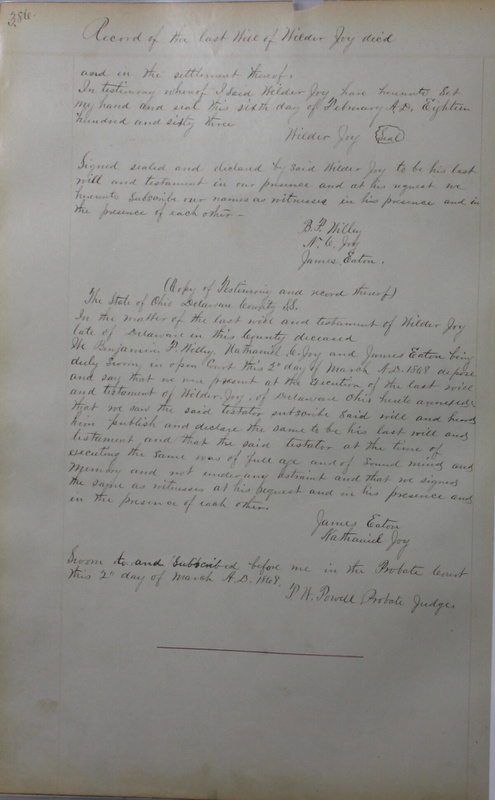 386
Record of the last Will of Wilder Joy died
and in the settlement thereof.
In testimony whereof I said Wilder Joy have hereunto Set
my hand and seal this sixth day of February A.D. Eighteen
hundred and sixty three
Wilder Joy (Seal)
Signed sealed and declared by said Wilder Joy to be his last
will and testament in our presence and at his request we
hereunto Subscribe our names as witnesses in his presence and in
the presence of each other -
B. F. Willey
N. C. Joy
James Eaton.
(Copy of Testimony and record thereof)
The State of Ohio Delaware County SS.
In the matter of the last will and testament of Wilder Joy
late of Delaware in this County deceased
We Benjamin F. Willey, Nathaniel C. Joy and James Eaton being
duly Sworn in open Court this 2d day of March A.D. 1868 depose
and say that we were present at the execution of the last will
and testament of Wilder Joy, of Delaware Ohio hereto annexed
that we saw the said testator subscribe said will and heard
him publish and declare the same to be his last will and
testament and that the said testator at the time of
executing the same was of full age and of Sound mind and
Memory and not under any restraint and that we signed
the same as witnesses at his request and in his presence and
in the presence of each other.
James Eaton
Nathaniel Joy
Sworn to and Subscribed before me in the Probate Court
this 2d day of March A.D. 1868.
T. W. Powell Probate Judge